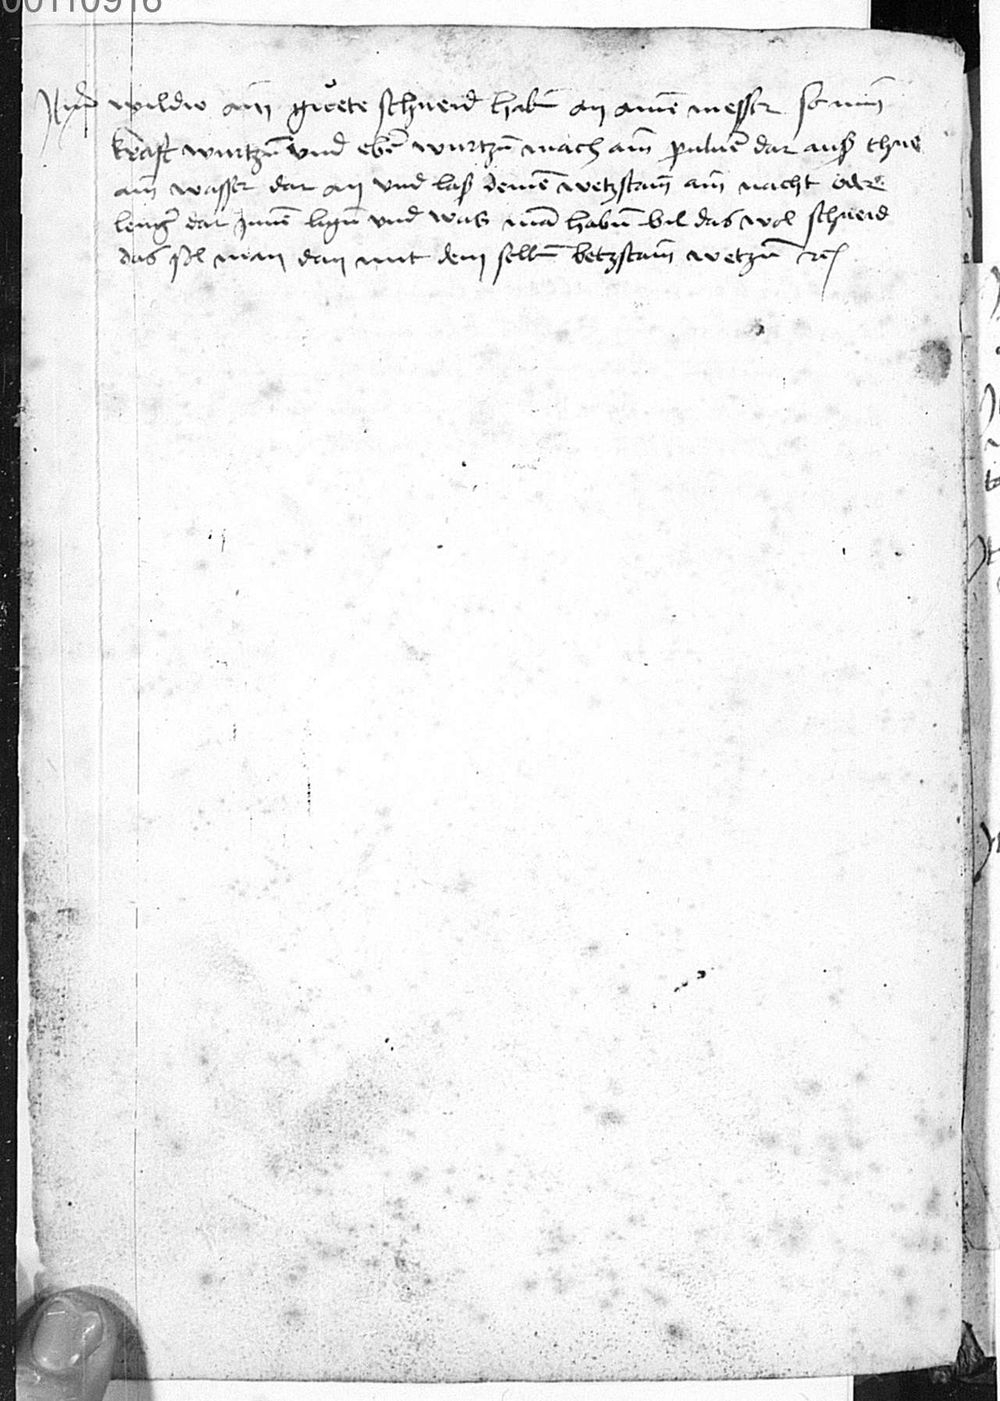 00110916
Item wildw ain güete schneid habn̄ an aine͞ messer so nim̄
kraft wurtzn̄ vnd ebe͞ wurtzn̄ mach ain̄ puluer dar auß thue
ain̄ wasser dar an vnd laß deine͞ wetzstain̄ ain̄ nacht oder
leng̉ dar Inne͞ lign̄ vnd was ma͞ habn̄ bil das wol schneid
das sol man dan mit dem selbn̄ betzstain̄ wetzn̄ etc